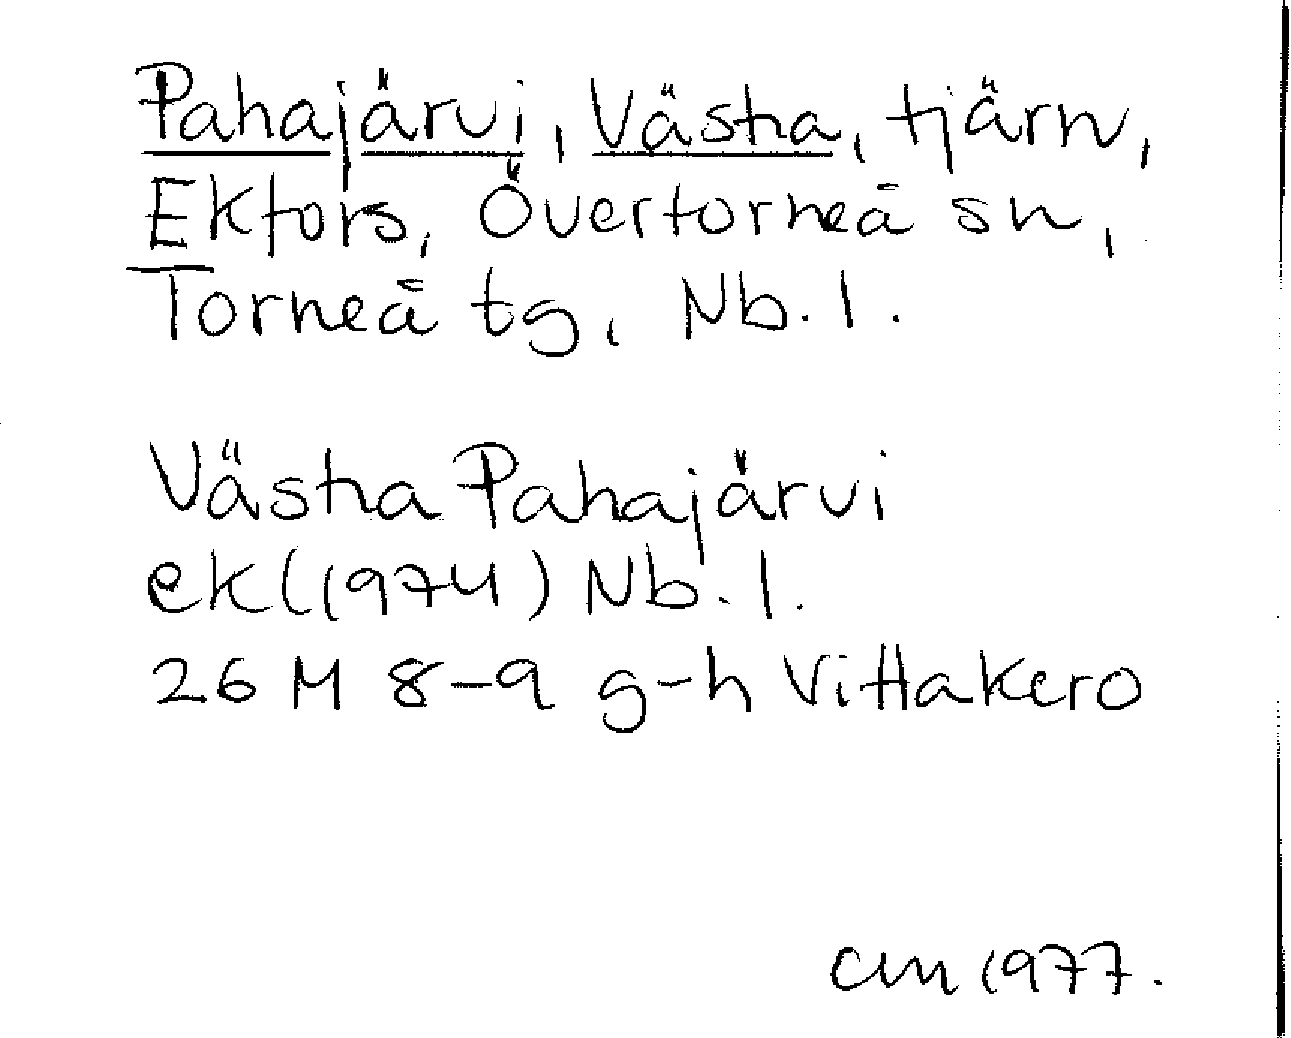 Pahajärvi, Västra, tjärn,
Ekfors, Övertorneå sn,
Torneå tg, Nb. l.
Västra Pahajärvi
ek (1974) Nb. l.
26 M 8-9 g-h Vittakero
CM 1977.